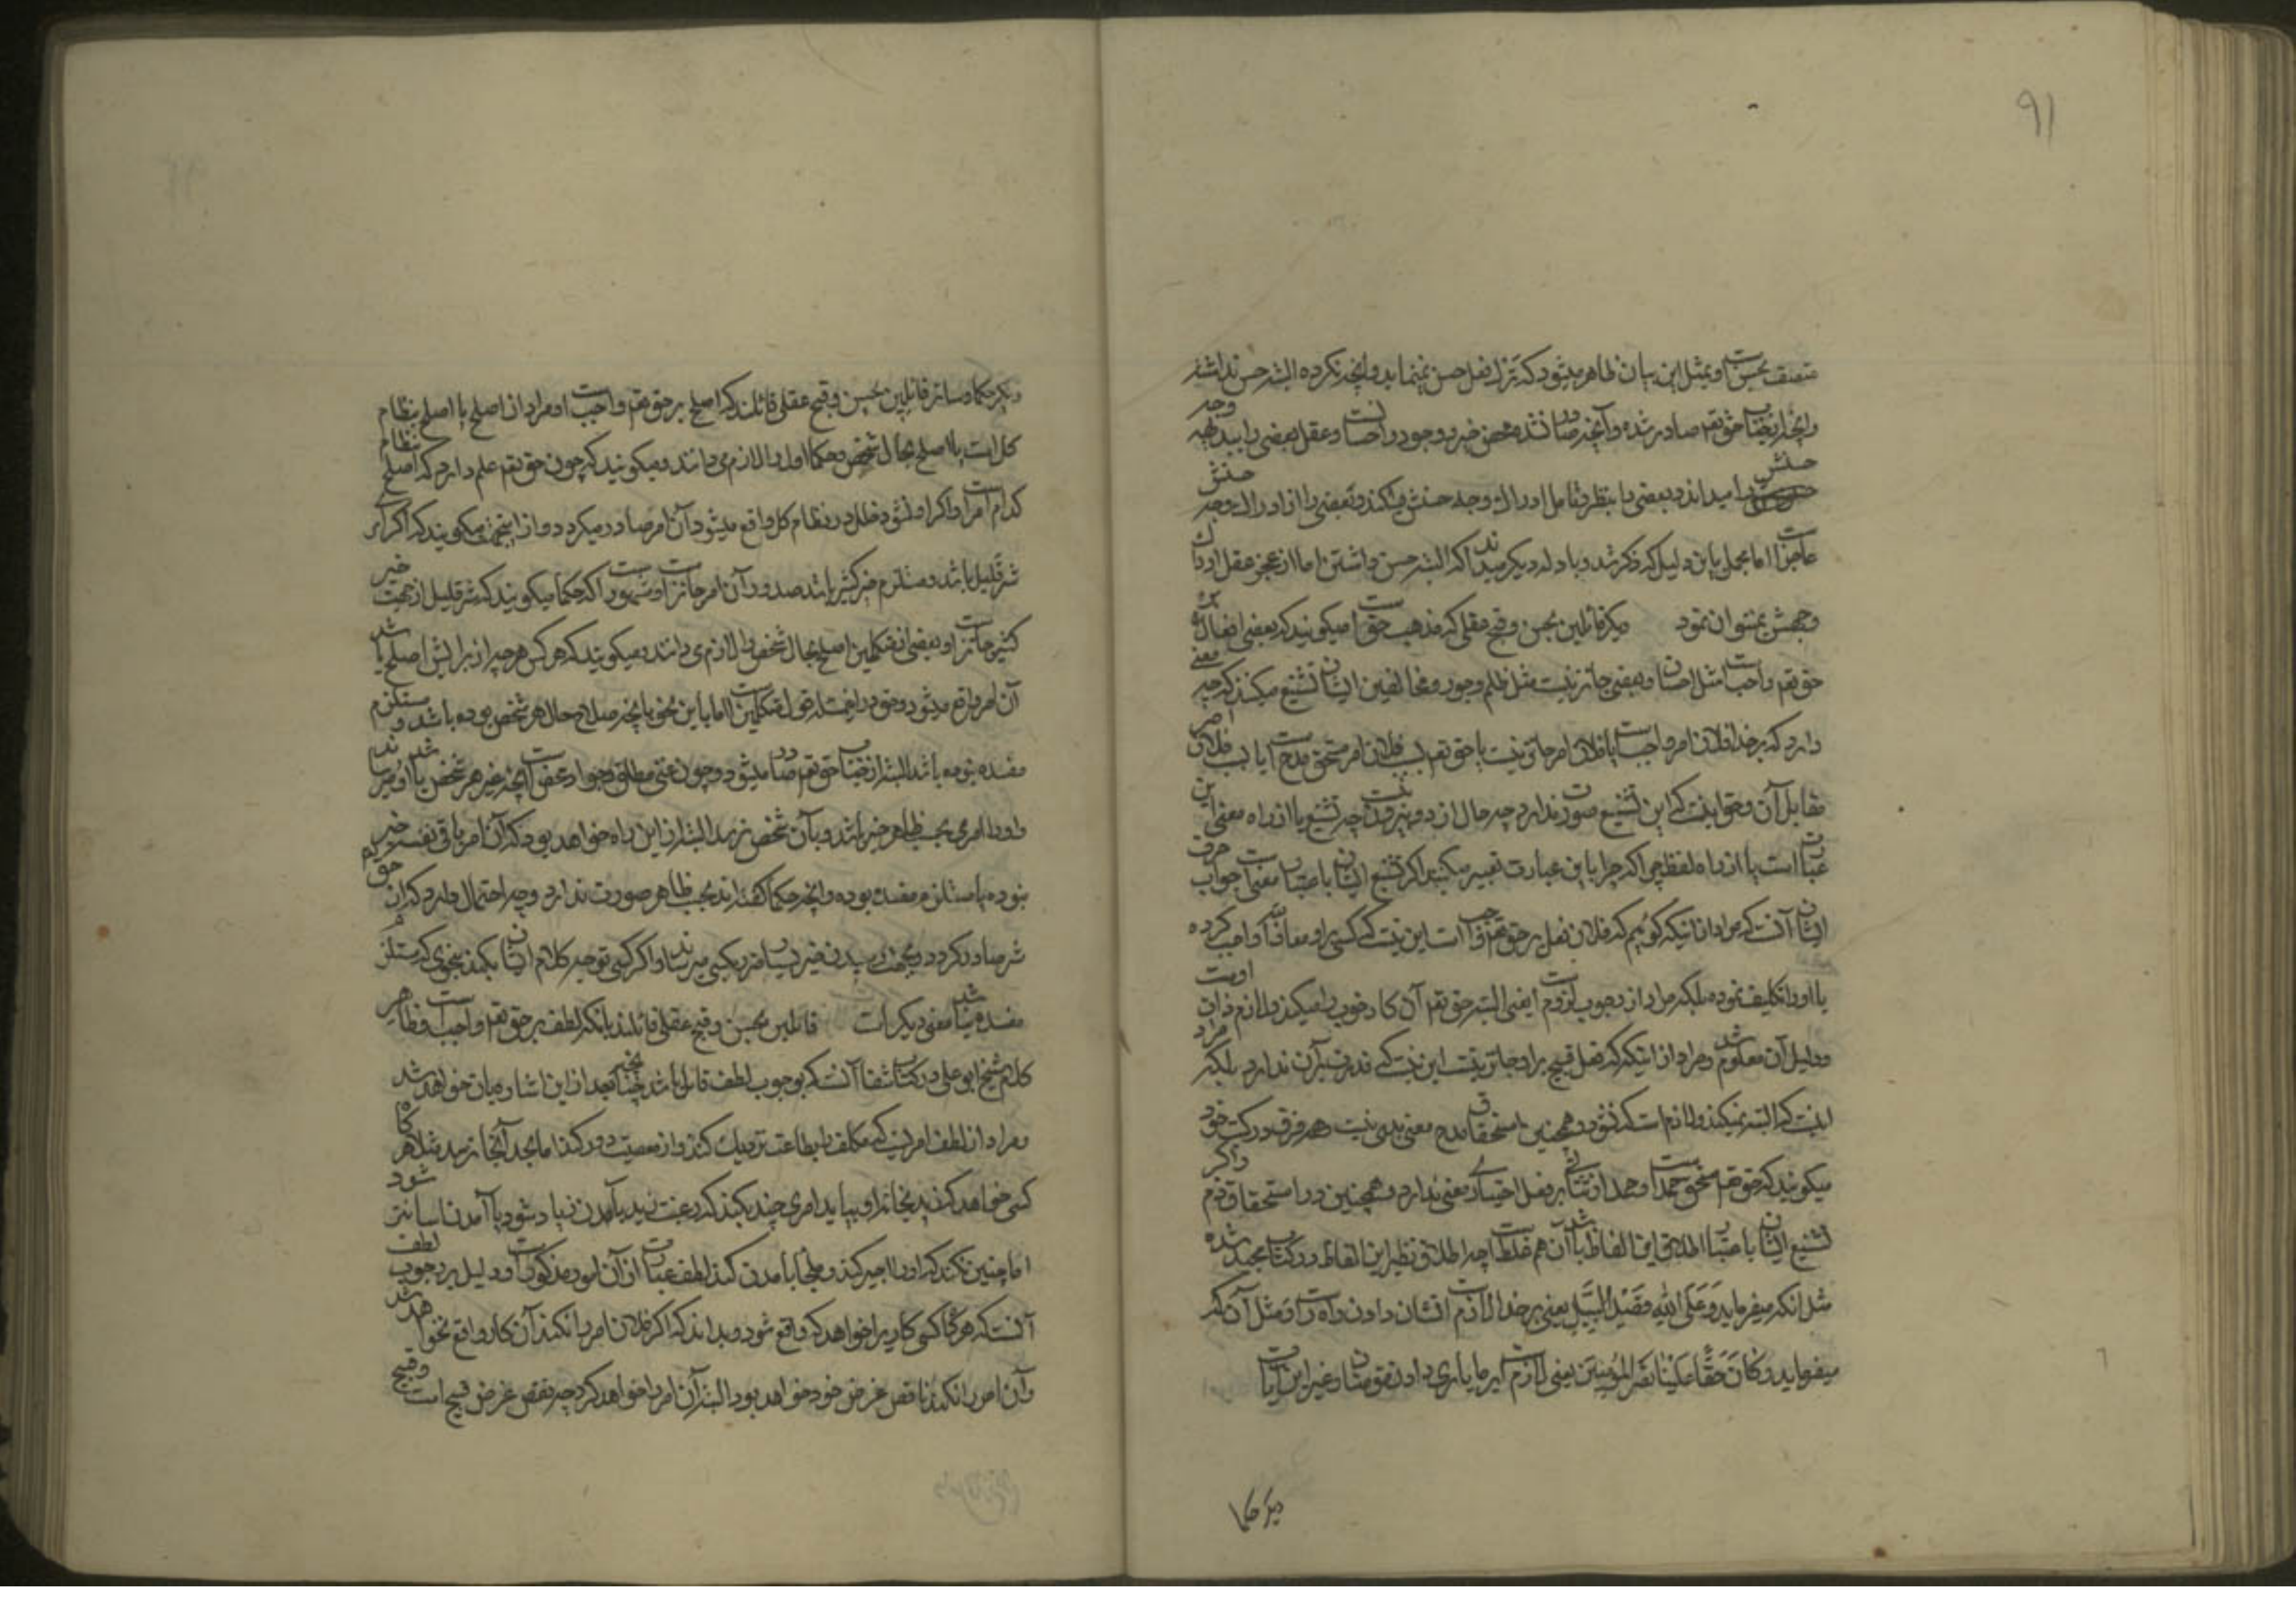 ۹۱
متصف بحسن است و بمثل این بیان ظاهر میشود که ترک فعل حسن نمینماید و آنچه نکرده البته حسن نداشته
و آنچه از جناب حق تعم صادر شده و آنچه صادر نشده محض خیر و وجود و احسانست و عقل بعضی را بیدیهه وجه
حسنش را میداند و بعضی را بنظر و تامل ادراک وجه حسنش میکند و بعضی را از ادراک وجه حسنش
عاجز است اما مجمل باین دلیل که ذکر شد و بادله دیگر میداند که البته حسن داشته اما از عجز عقل ادراک
وجهش نمیتوان نمود دیگر قائلین بحسن و قبح عقلی که مذهب حق است میکویند که بعضی افعال بر
حق تعم واجب است مثل احسان و بعضی جائز نیست مثل ظلم و جور و مخالفین ایشان تشنیع میکنند که چه معنی
دارد که بر خدا فلان امر واجب است یا فلان امر جائز نیست یا حق تعم بسبب فلان امر مستحق مدح است یا بسبب فلان امر
مقابل آن و حق اینست که این تشنیع صورت ندارد چه حال از دو بیرون نیست چه تشنیع یا از راه معنی این
عبارت است یا از راه لفظ چی که چرا باین عبارت تعبیر میکنید اگر تشنیع ایشان باعتبار معنیست جواب حرف
ایشان آنست که مراد از اینکه گوئیم که فلان فعل بر حق تعم واجب است این نیست که کسی بر او معاذ الله واجب کرده
یا او را تکلیف نموده بلکه مراد از وجوب لزوم است یعنی البته حق تعم آن کار خوب را میکند و لازم ذات اوست
و دلیل آن معلوم شد و مراد از اینکه که فعل قبیح بر او جائز نیست این نیست که قدرت بر آن ندارد بلکه مراد
اینست که البته نمیکند و لازم است که نشود و همچنین استحقاق مدح معنی بدی نیست و هر فرق در کتب خود
میکویند که حق تعم مستحق حمد است و حمد از ثنائی بر فعل اختیاری معنی ندارد و همچنین در استحقاق ذم و اگر
تشنیع ایشان باعتبار اطلاق این الفاظ باشد آن هم غلط است چه اطلاق نظیر این الفاظ در کتاب مجید شده
مثل انکه میفرماید وَعَلَی اللّهِ قَصْدُ السَّبیلِ یعنی بر خدا لازم است نشان دادن راه راست و مثل آن که
میفرماید وَکانَ حَقّاً عَلَیْنا نَصْرُ المُؤْمِنینَ یعنی لازم است بر ما یاری دادن مومنان و غیر این آیات
دیگر حکما
دیگر حکما و سائر قائلین بحسن و قبح عقلی قائلند که اصلح بر حق تعم واجب است و مراد از اصلح یا اصلح بنظام
کل است یا اصلح بحال شخص و حکما اول را لازم می دانند و میکویند که چون حق تعم علم دارد که اصلح بنظام
کدام امر است و اگر او نشود خلل در نظام کل واقع میشود آن امر صادر میکردد و از اینجهت میکویند که اگر امری
شر قلیل باشد و مستلزم خیر کثیر باشد صدور آن امر جائز است و مشهور است که حکما میکویند که شر قلیل از جهت خیر
کثیر جائز است و بعضی از متکلمین اصلح بحال شخص را لازم می دانند و میکویند که هر کس هر چیز از برایش اصلح باشد
آن امر واقع میشود و حق در این مسئله قول متکلمین است اما باین نحو که آنچه صلاح حال هر شخص بوده باشد و مستلزم
مفسده نبوده باشد البته از جناب حق تعم صادر میشود و چون غنی مطلق و جواد محض است آنچه خیر هر شخص باشد باو میرساند
و او را امری بحسب ظاهر خیر باشد و بآن شخص نرسد البته از این راه خواهد بود که آن امر یا فی نفسه خیر
نبوده یا مستلزم مفسده بوده و آنچه حکما گفته اند بحسب ظاهر صورت ندارد و چه احتمال دارد که از حق تعم
شر صادر کردد و بجهت رسیدن خیر بسیار ضرر بکسی میرساند و اگر کسی توجیه کلام ایشان بکند بنحوی که مستلزم
مفسده نباشد معنی دیگر است قائلین بحسن و قبح عقلی قائلند بانکه لطف بر حق تعم واجب است و ظاهر
کلام شیخ ابو علی در کتاب شفا آنست که بوجوب لطف قائل باشد چنانچه بعد از این اشاره بآن خواهد شد
و مراد از لطف امریست که مکلف را بطاعت نزدیک کند و از معصیت دور کند اما بحد الجا نرسد مثلا هرگاه
کسی خواهد که زید بخانه او بیاید امری چند بکند که رغبت زید بآمدن زیاد شود یا آمدن آسانتر شود
اما چنین نکند که او را جبر کند و ملجا بآمدن کند لطف عبارت از آن امور مذکور است و دلیل بر وجوب لطف
آنست که هرگاه کسی کاریرا خواهد که واقع شود و بداند که اگر فلان امر را نکند آن کار واقع نخواهد شد
و آن امر را نکند ناقض غرض خود خواهد بود البته آن امر را خواهد کرد چه نقض غرض قبیح است و قبیح